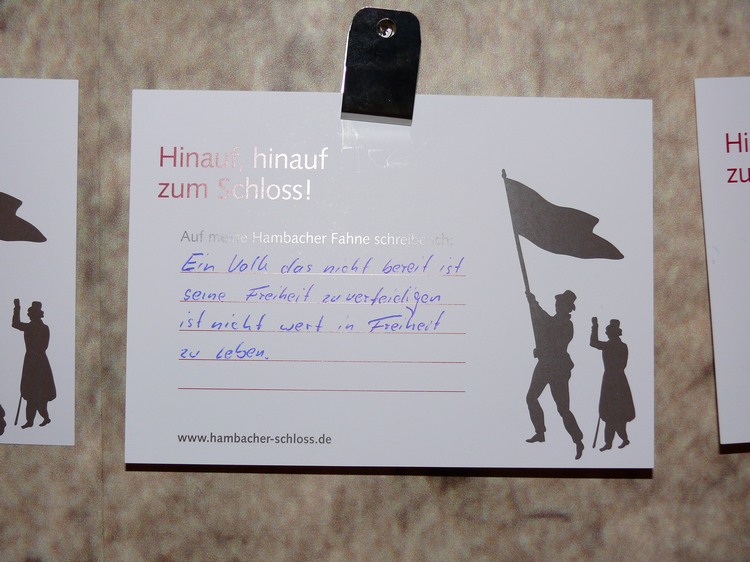 Hinauf, hinauf
zum Schloss!
Auf meine Hambacher Fahne schreibe ich:
Ein Volk das nicht bereit ist
seine Freiheit zu verteidigen
ist nicht wert in Freiheit
zu leben.
www.hambacher-schloss.de
Hi
zu